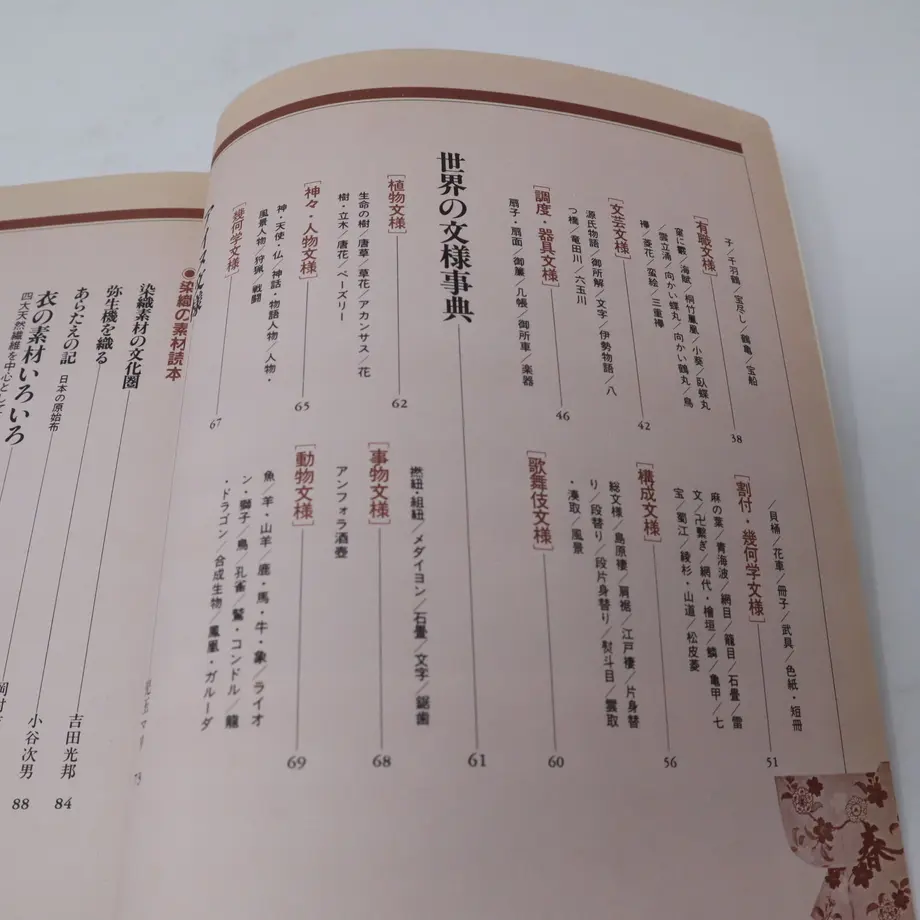 子／千羽鶴／宝尽し／鶴亀／宝船
［有職文様］
窠に霰／海賦／桐竹鳳凰／小葵／臥蝶丸
／雲立涌／向かい蝶丸／向かい鶴丸／鳥
襷／菱花／蛮絵／三重襷
38
［文芸文様］
源氏物語／御所解／文字／伊勢物語／八
つ橋／竜田川／六玉川
42
［調度・器具文様］
扇子・扇面／御簾／几帳／御所車／楽器
46
／貝桶／花車／冊子／武具／色紙・短冊
［割付・幾何学文様］
麻の葉／青海波／網目／籠目／石畳／雷
文／卍繋ぎ／網代・檜垣／鱗／亀甲／七
宝／蜀江／綾杉・山道／松皮菱
51
［構成文様］
総文様／島原褄／肩裾／江戸褄／片身替
り／段替り／段片身替り／熨斗目／雲取
・湊取／風景
56
［歌舞伎文様］
60
世界の文様事典
61
［植物文様］
生命の樹／唐草／草花／アカンサス／花
樹・立木／唐花／ペーズリー
62
［神々・人物文様］
神・天使・仏／神話／物語人物／人物・
風景人物／狩猟／戦闘
65
［幾何学文様］
67
撚紐・組紐／メダイヨン／石畳／文字／鋸歯
［事物文様］
アンフォラ酒壺
68
［動物文様］
魚／羊・山羊／鹿・馬・牛・象／ライオ
ン・獅子／鳥／孔雀／鷲・コンドル／龍
・ドラゴン／合成生物／鳳凰・ガルーダ
69
●染織の素材読本
染織素材の文化圏
弥生機を織る
吉田光邦
84
あらたえの記
日本の原始布
小谷次男
88
衣の素材いろいろ
四大天然繊維を中心として
春